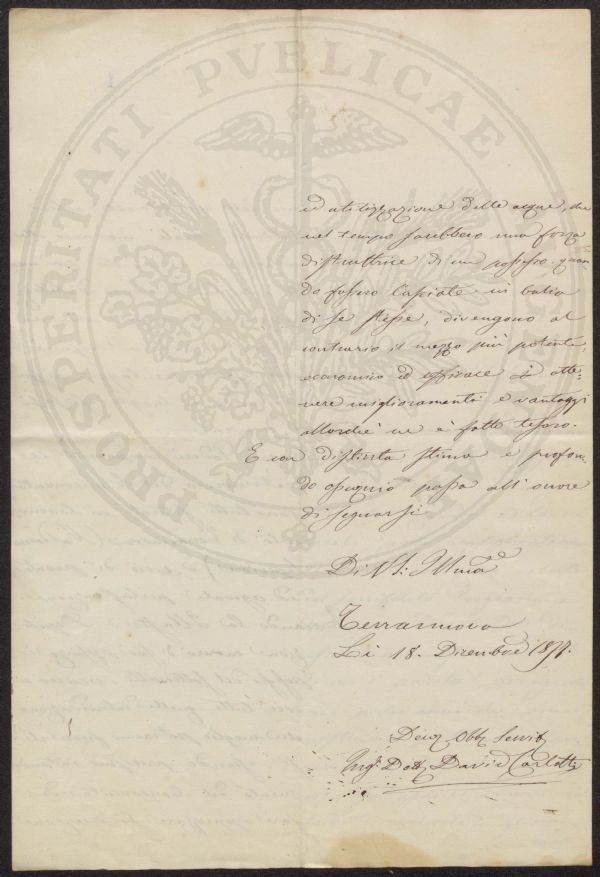 PROSPERITATI PVBLICAE
ed utilizzazione delle acque, che
nel tempo sarebbero una forza
distruttrice di un possesso quan-
do fossero lasciate in balia
di se stesse, divengono al
contrario il mezzo più potente,
economico ed efficace di otte-
nere miglioramenti e vantaggi
allorchè ne è fatto tesoro.
E con distinta stima e profon-
do ossequio passa all'onore
di segnarsi
Di V. S. Illma
Terranuova
Li 18. Dicembre 1877.
Devo Obbo Servit
Ingr Dott David Carlotti